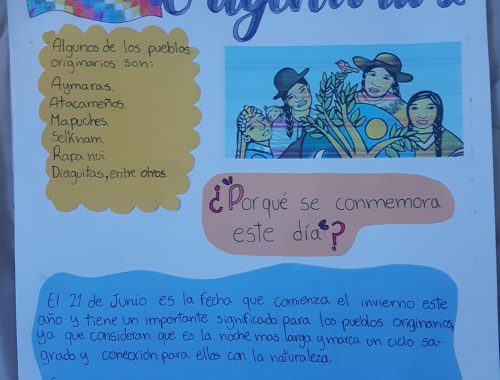 Originarios
Algunos de los pueblos
originarios son:
Aymaras.
Atacameños.
Mapuches.
Selknam.
Rapa nui.
Diaguitas, entre otras.
¿Por qué se conmemora
este día?
El 21 de Junio es la fecha que comienza el invierno este
año y tiene un importante significado para los pueblos originarios,
ya que consideran que es la noche mas larga y marca un ciclo sa-
grado y conección para ellos con la naturaleza.